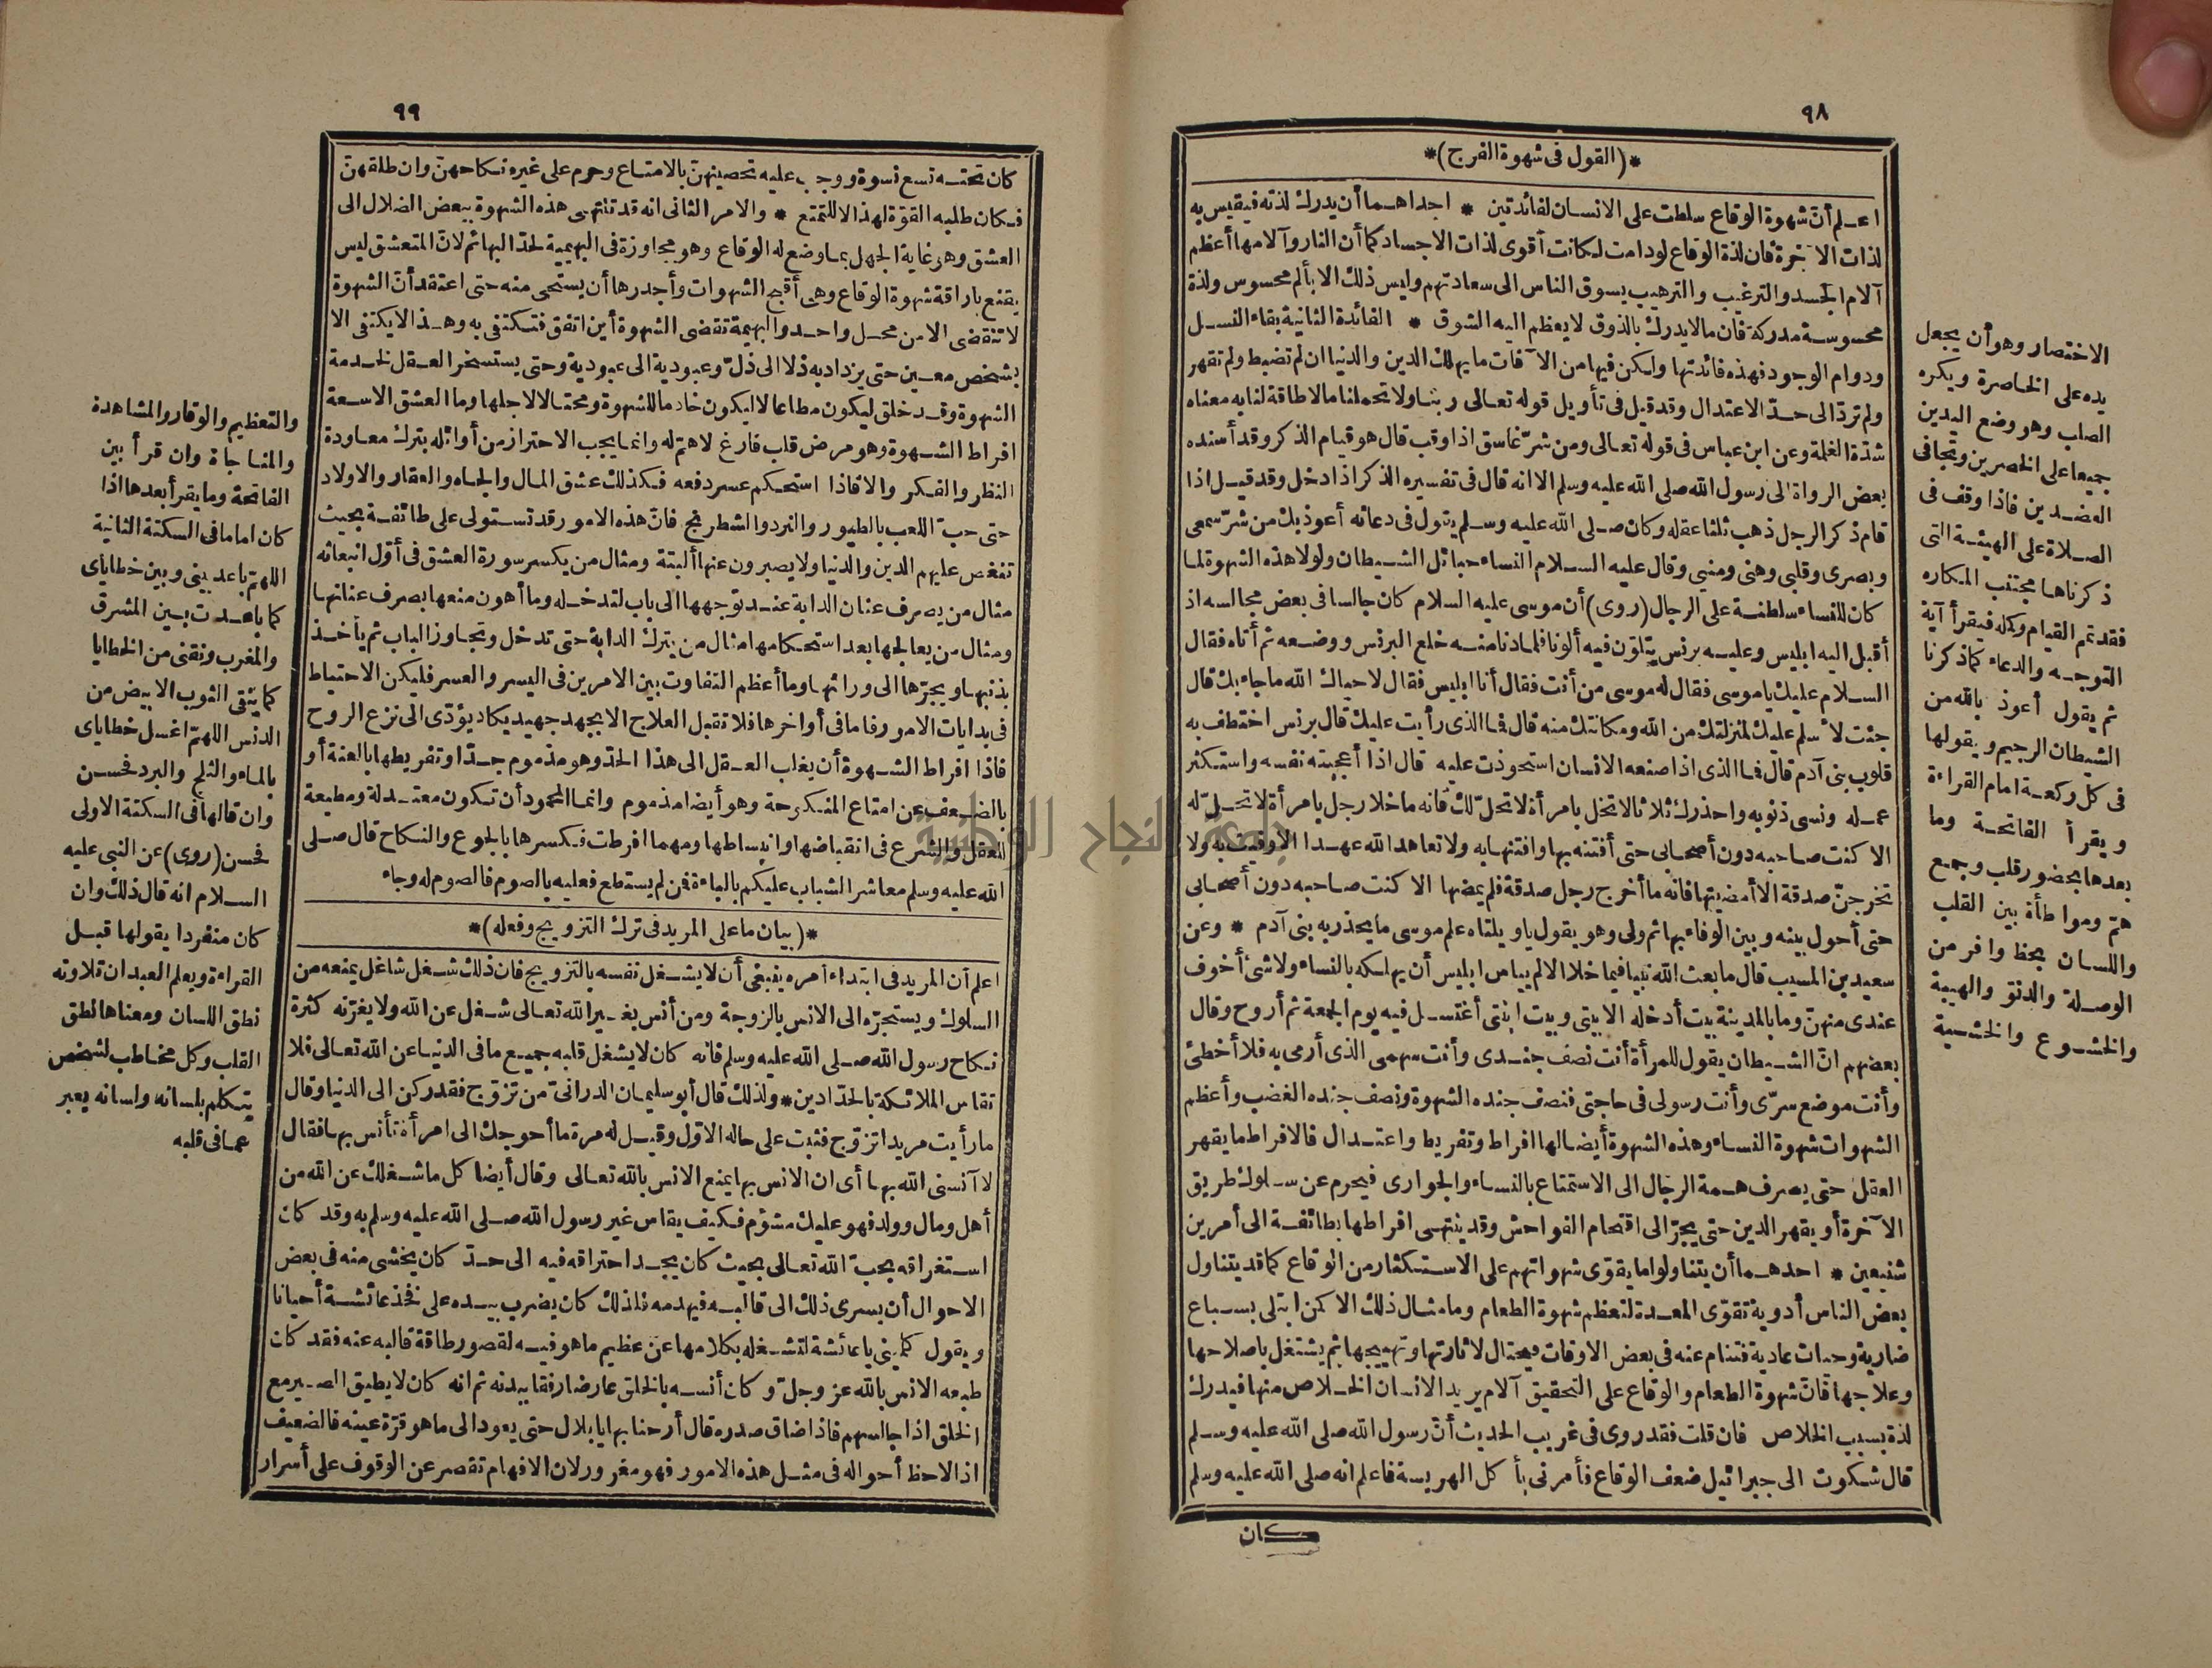 ٩٨
*(القول فى شهوة الفرج)*
اعلم أن شهوة الوقاع سلطت على الانسان لفائدتين * احداهما أن يدرك لذته فيقيس به
لذات الآخرة فان لذة الوقاع لودامت لكانت أقوى لذات الاجساد كما أن النار وآلامها أعظم
آلام الجسد والترغيب والترهيب يسوق الناس الى سعادتهم وليس ذلك الا بألم محسوس ولذة
محسوسة مدركة فان مالا يدرك بالذوق لا يعظم اليه الشوق * الفائدة الثانية بقاء النسل
ودوام الوجود فهذه فائدتها ولكن فيها من الآفات ما يهلك الدين والدنيا ان لم تضبط ولم تقهر
ولم تردّ الى حدّ الاعتدال وقد قيل فى تأويل قوله تعالى ربنا ولا تحملنا مالا طاقة لنا به معناه
شدّة الغلمة وعن ابن عباس فى قوله تعالى ومن شرّ غاسق اذا وقب قال هو قيام الذكر وقد أسنده
بعض الرواة الى رسول الله صلى الله عليه وسلم الا انه قال فى تفسيره الذكر اذا دخل وقد قيل اذا
قام ذكر الرجل ذهب ثلثا عقله وكان صلى الله عليه وسلم يقول فى دعائه أعوذ بك من شرّ سمعى
وبصرى وقلبى وهنى ومنيى وقال عليه السلام النساء حبائل الشيطان ولولا هذه الشهوة لما
كان للنساء سلطنة على الرجال (روى) أن موسى عليه السلام كان جالسا فى بعض مجالسه اذ
أقبل اليه ابليس وعليه برنس يتلوّن فيه ألونا فلما دنا منه خلع البرنس ووضعه ثم أتاه فقال
السلام عليك يا موسى فقال له موسى من أنت فقال أنا ابليس فقال لا حياك الله ما جاء بك قال
جئت لأسلم عليك لمنزلتك من الله ومكانتك منه قال فما الذى رأيت عليك قال برنس اختطف به
قلوب بنى آدم قال فما الذى اذا صنعه الانسان استحوذت عليه قال اذا أعجبته نفسه واستكثر
عمله ونسى ذنوبه واحذرك ثلاثا لا تخل بامرأة لا تحلّ لك فانه ما خلا رجل بامرأة لا تحلّ له
الا كنت صاحبه دون أصحابى حتى أفتنه بها وافتنها به ولا تعاهد الله عهدا الا وفيت به ولا
تخرجنّ صدقة الا أمضيتها فانه ما أخرج رجل صدقة فلم يمضها الا كنت صاحبه دون أصحابى
حتى أحول بينه وبين الوفاء بها ثم ولى وهو يقول يا ويلتاه علم موسى ما يحذر به بنى آدم * وعن
سعيد بن المسيب قال ما بعث الله نبيا فيما خلا الا لم ييأس ابليس أن يهلكه بالنساء ولا شئ أخوف
عندى منهنّ وما بالمدينة بيت أدخله الا بيتى وبيت ابنتى أغتسل فيه يوم الجمعة ثم أروح وقال
بعضهم انّ الشيطان يقول للمرأة أنت نصف جندى وأنت سهمى الذى أرمى به فلا أخطئ
وأنت موضع سرّى وأنت رسولى فى حاجتى فنصف جنده الشهوة ونصف جنده الغضب وأعظم
الشهوات شهوة النساء وهذه الشهوة أيضا لها افراط وتفريط واعتدال فالافراط ما يقهر
العقل حتى يصرف همة الرجال الى الاستمتاع بالنساء والجوارى فيحرم عن سلوك طريق
الآخرة أو يقهر الدين حتى يجرّ الى اقتحام الفواحش وقد ينتهى افراطها بطائفة الى أمرين
شنيعين * احدهما أن يتناولوا ما يقوّى شهواتهم على الاستكثار من الوقاع كما قد يتناول
بعض الناس أدوية تقوّى المعدة لتعظم شهوة الطعام وما مثال ذلك الا كمن ابتلى بسباع
ضارية وحيات عادية فتنام عنه فى بعض الاوقات فيحتال لاثارتها وتهييجها ثم يشتغل باصلاحها
وعلاجها فانّ شهوة الطعام والوقاع على التحقيق آلام يريد الانسان الخلاص منها فيدرك
لذة بسبب الخلاص فان قلت فقد روى فى غريب الحديث أنّ رسول الله صلى الله عليه وسلم
قال شكوت الى جبرائيل ضعف الوقاع فأمرنى بأكل الهريسة فاعلم انه صلى الله عليه وسلم
كان
الاختصار وهو أن يجعل
يده على الخاصرة ويكره
الصلب وهو وضع اليدين
جميعا على الخصرين وتجافى
العضدين فاذا وقف فى
الصلاة على الهيئة التى
ذكرناها مجتنب المكاره
فقد تم القيام وكله فيقرأ آية
التوجه والدعاء كما ذكرنا
ثم يقول أعوذ بالله من
الشيطان الرجيم ويقولها
فى كل ركعة امام القراءة
ويقرأ الفاتحة وما
بعدها بحضور قلب وجميع
همّ ومواطأة بين القلب
واللسان بحظ وافر من
الوصلة والدنوّ والهيبة
والخشوع والخشية
٩٩
كان تحته تسع نسوة ووجب عليه تحصينهنّ بالامتاع وحرم على غيره نكاحهنّ وان طلقهنّ
فكان طلبه القوّة لهذا لا للتمتع * والامر الثانى انه قد تنتهى هذه الشهوة ببعض الضلال الى
العشق وهو غاية الجهل بما وضع له الوقاع وهو مجاوزة فى البهيمية لحدّ البهائم لانّ المتعشق ليس
يقنع باراقة شهوة الوقاع وهى أقبح الشهوات وأجدرها أن يستحى منه حتى اعتقد أنّ الشهوة
لا تنقضى الا من محل واحد والبهيمة تقضى الشهوة أين اتفق فتكتفى به وهذا لا يكتفى الا
بشخص معين حتى يزداد به ذلا الى ذلّ وعبودية الى عبودية وحتى يستسخر العقل لخدمة
الشهوة وقد خلق ليكون مطاعا لا ليكون خادما للشهوة ومحتالا لاجلها وما العشق الاسعة
افراط الشهوة وهو مرض قلب فارغ لا همّ له وانما يجب الاحتراز من أوائله بترك معاودة
النظر والفكر والا فاذا استحكم عسر دفعه فكذلك عشق المال والجاه والعقار والاولاد
حتى حبّ اللعب بالطيور والنرد والشطرنج فانّ هذه الامور قد تستولى على طائفة بحيث
تنغص عليهم الدين والدنيا ولا يصبرون عنها ألبتة ومثال من يكسر سورة العشق فى أوّل انبعاثه
مثال من يصرف عنان الدابة عند توجهها الى باب لتدخله وما أهون منعها بصرف عنانها
ومثال من يعالجها بعد استحكامها مثال من يترك الدابة حتى تدخل وتجاوز الباب ثم يأخذ
بذنبها ويجرّها الى ورائها وما أعظم التفاوت بين الامرين فى اليسر والعسر فليكن الاحتياط
فى بدايات الامور فاما فى أواخرها فلا تقبل العلاج الا بجهد جهيد يكاد يؤدّى الى نزع الروح
فاذا افراط الشهوة أن يغلب العقل الى هذا الحدّ وهو مذموم جدّا وتفريطها بالعنة أو
بالضعف عن امتاع المنكوحة وهو أيضا مذموم وانما المحمود أن تكون معتدلة ومطيعة
للعقل والشرع فى انقباضها وانبساطها ومهما افرطت فكسرها بالجوع والنكاح قال صلى
الله عليه وسلم معاشر الشباب عليكم بالباءة فمن لم يستطع فعليه بالصوم فالصوم له وجاء
*(بيان ما على المريد فى ترك التزويج وفعله)*
اعلم أن المريد فى ابتداء أمره ينبغى أن لا يشغل نفسه بالتزويج فان ذلك شغل شاغل يمنعه من
السلوك ويستجرّه الى الانس بالزوجة ومن أنس بغير الله تعالى شغل عن الله ولا يغرّنه كثرة
نكاح رسول الله صلى الله عليه وسلم فانه كان لا يشغل قلبه جميع ما فى الدنيا عن الله تعالى فلا
تقاس الملائكة بالحدّادين * ولذلك قال أبو سليمان الدرانىّ من تزوّج فقد ركن الى الدنيا وقال
ما رأيت مريدا تزوّج فثبت على حاله الاوّل وقيل له مرة ما أحوجك الى امرأة تأنس بها فقال
لا آنسنى الله بها أى ان الانس بها يمنع الانس بالله تعالى وقال أيضا كل ما شغلك عن الله من
أهل ومال وولد فهو عليك مشؤم فكيف يقاس غير رسول الله صلى الله عليه وسلم به وقد كان
استغراقه بحبّ الله تعالى بحيث كان يجد احتراقه فيه الى حدّ كان يخشى منه فى بعض
الاحوال أن يسرى ذلك الى قالبه فيهدمه فلذلك كان يضرب بيده على فخذ عائشة أحيانا
ويقول كلمينى يا عائشة لتشغله بكلامها عن عظيم ما هو فيه لقصور طاقة قالبه عنه فقد كان
طبعه الانس بالله عز وجلّ وكان أنسه بالخلق عارضا رفقا ببدنه ثم انه كان لا يطيق الصبر مع
الخلق اذا جالسهم فاذا ضاق صدره قال أرحنا بها يا بلال حتى يعود الى ما هو قرّة عينه فالضعيف
اذا لاحظ أحواله فى مثل هذه الامور فهو مغرور لان الافهام تقصر عن الوقوف على أسرار
والتعظيم والوقار والمشاهدة
والمناجاة وان قرأ بين
الفاتحة وما يقرأ بعدها اذا
كان اماما فى السكتة الثانية
اللهمّ باعد بينى وبين خطاياى
كما باعدت بين المشرق
والمغرب ونقنى من الخطايا
كما ينقى الثوب الابيض من
الدنس اللهمّ اغسل خطاياى
بالماء والثلج والبرد فحسن
وان قالها فى السكتة الاولى
فحسن (روى) عن النبى عليه
السلام انه قال ذلك وان
كان منفردا يقولها قبل
القراءة ويعلم العبد ان تلاوته
نطق اللسان ومعناها نطق
القلب وكل مخاطب لشخص
يتكلم بلسانه ولسانه يعبر
عما فى قلبه
جامعة النجاح الوطنية